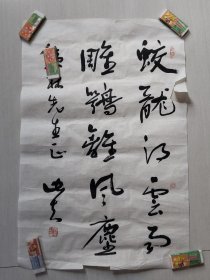 蛟龍得雲雨
雕鶚離風塵
林先生正